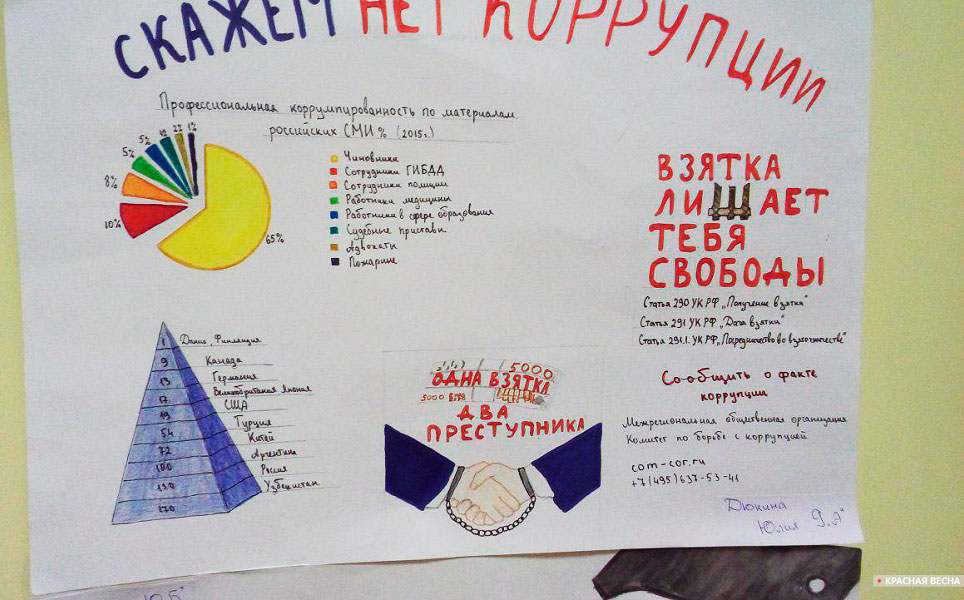 СКАЖЕМ НЕТ КОРРУПЦИИ
Профессиональная коррумпированность по материалам
российских СМИ % (2015г.)
65%
10%
8%
5%
5%
4%
2%
1%
Чиновники
Сотрудники ГИБДД
Сотрудники полиции
Работники медицины
Работники в сфере образования
Судебные приставы
Адвокаты
Пожарные
ВЗЯТКА
ЛИШАЕТ
ТЕБЯ
СВОБОДЫ
Статья 290 УК РФ „Получение взятки"
Статья 291 УК РФ „Дача взятки"
Статья 291.1. УК РФ „Посредничество во взяточничестве"
Сообщить о факте
коррупции
Межрегиональная общественная организация
Комитет по борьбе с коррупцией
com-cor.ru
+7(495)637-53-41
Дюкина
Юлия 9„Я"
1 Дания, Финляндия
9 Канада
13 Германия
17 Великобритания Япония
19 США
54 Турция
72 Китай
100 Аргентина
130 Россия
170 Узбекистан
5000
ОДНА ВЗЯТКА
5000
ДВА
ПРЕСТУПНИКА
КРАСНАЯ ВЕСНА